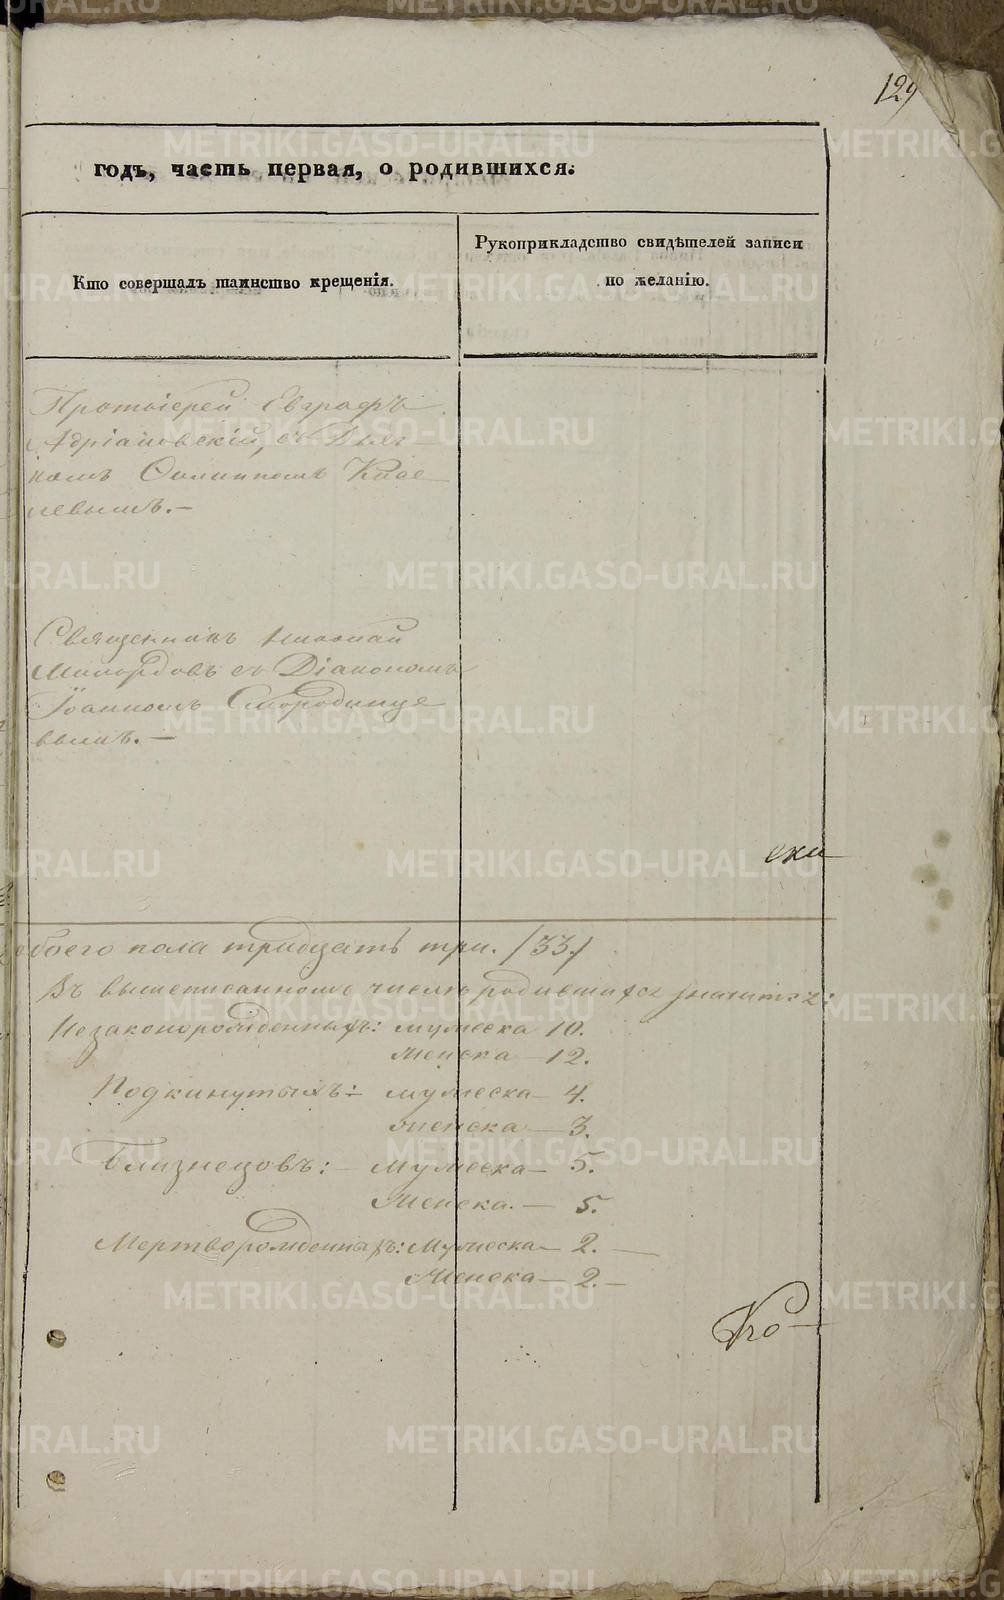 129
годъ, часть первая, о родившихся.
Кто совершалъ таинство крещенія.
Рукоприкладство свидѣтелей записи
по желанію.
Протоіерей Евграфъ
Адріановскій, съ Дьяч-
комъ Кисе-
левымъ.—
Священникъ Николай
Милордовъ съ Діакономъ
Іоанномъ Смородинце
вымъ.—
обоего пола тридцать три. /33./
Въ вышеписанномъ числѣ родившихся значится:
Незаконорожденныхъ: мужеска 10.
женска — 12.
Подкинутыхъ:— мужеска — 4.
женска — 3.
Близнецовъ:— мужеска — 5.
женска. — 5.
Мертворожденныхъ: мужеска — 2. —
женска — 2. —
METRIKI.GASO-URAL.RU